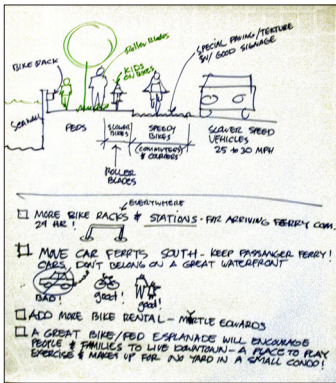 BIKE RACK
Roller Blades
KIDS ON BIKES
SPECIAL PAVING/TEXTURE
W/ GOOD SIGNAGE
SEAWALL
PEDS
SLOWER BIKES
SPEEDY BIKES
(COMMUTERS & COURIERS)
SLOWER SPEED
VEHICLES
25 to 30 MPH
ROLLER
BLADES
EVERYWHERE
MORE BIKE RACKS & STATIONS - FOR ARRIVING FERRY COM.
24 HR!
MOVE CAR FERRYS SOUTH - KEEP PASSANGER FERRY!
CARS DON'T BELONG ON A GREAT WATERFRONT
BAD!
good!
good!
ADD MORE BIKE RENTAL - MYRTLE EDWARDS
A GREAT BIKE/PED ESPLANADE WILL ENCOURAGE
PEOPLE & FAMILIES TO LIVE DOWNTOWN - A PLACE TO PLAY
EXERCISE & MAKES UP FOR NO YARD IN A SMALL CONDO!